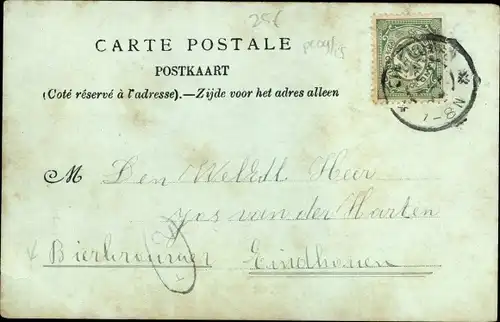 25€
CARTE POSTALE
POSTKAART
(Coté réservé à l'adresse).—Zijde voor het adres alleen
M Den WelEdl Heer
Jos van der Harten
Bierbrouwer Eindhoven
7-8N